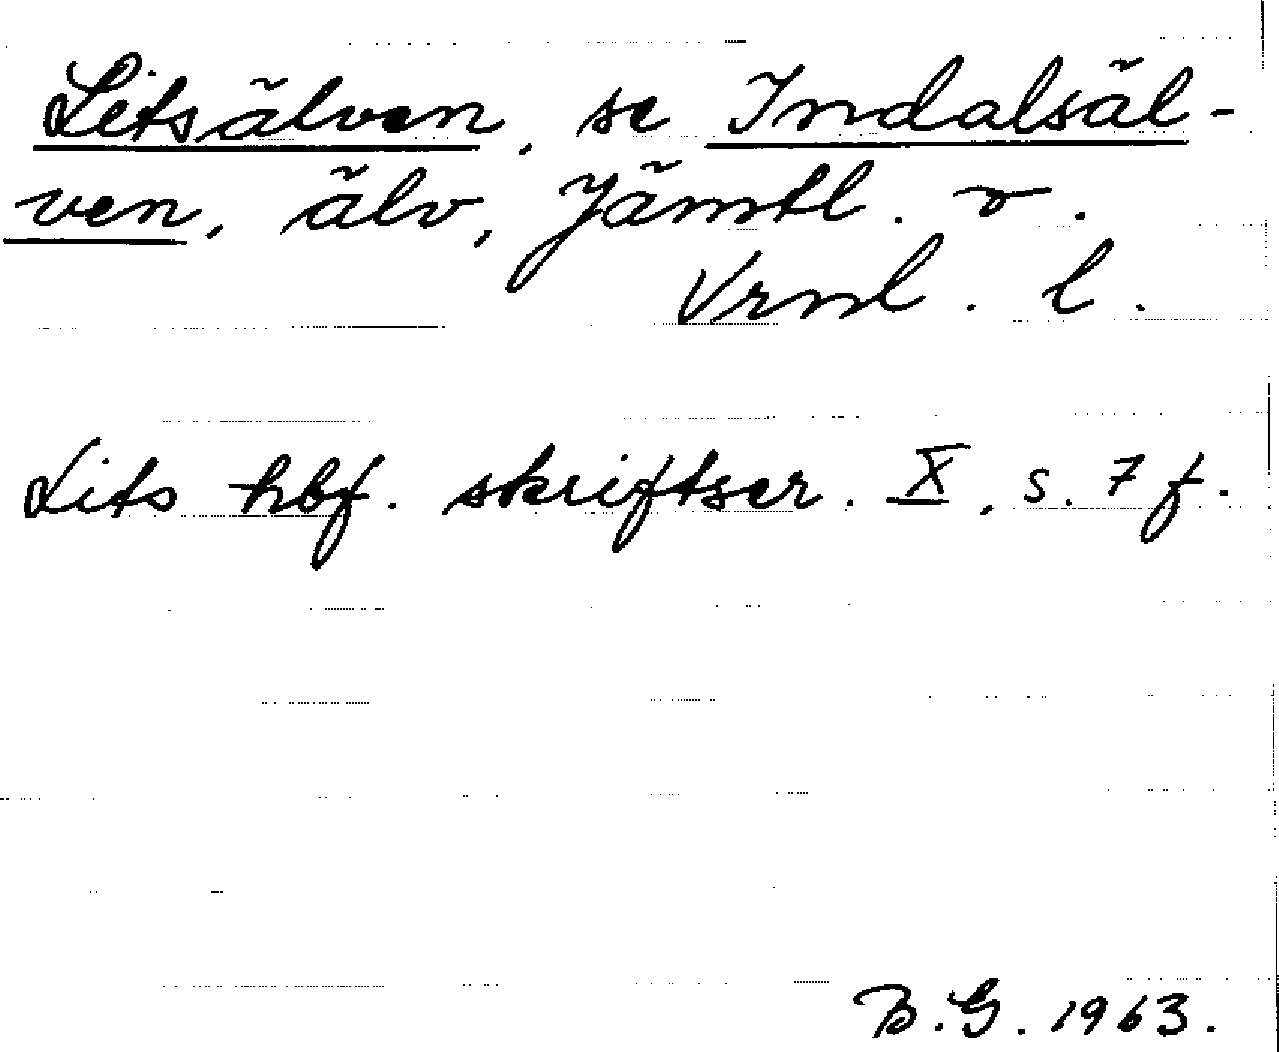 Litsälven, se Indalsäl-
ven, älv, Jämtl. o.
Vrnl. l.
Lits hbf. skriftser. X, s. 7 f.
B.G. 1963.